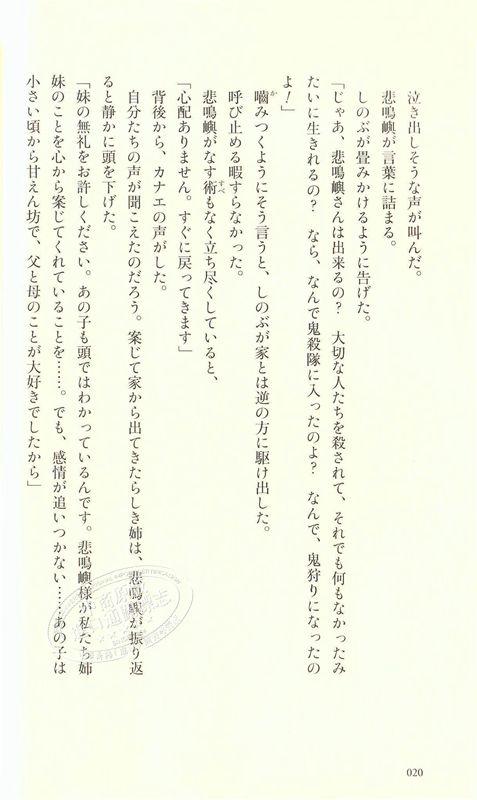 泣き出しそうな声が叫んだ。
悲鳴嶼が言葉に詰まる。
しのぶが畳みかけるように告げた。
「じゃあ、悲鳴嶼さんは出来るの？　大切な人たちを殺されて、それでも何もなかったみ
たいに生きれるの？　なら、なんで鬼殺隊に入ったのよ？　なんで、鬼狩りになったの
よ！」
嚙みつくようにそう言うと、しのぶが家とは逆の方に駆け出した。
か
呼び止める暇すらなかった。
悲鳴嶼がなす術もなく立ち尽くしていると、
すべ
「心配ありません。すぐに戻ってきます」
背後から、カナエの声がした。
自分たちの声が聞こえたのだろう。案じて家から出てきたらしき姉は、悲鳴嶼が振り返
ると静かに頭を下げた。
「妹の無礼をお許しください。あの子も頭ではわかっているんです。悲鳴嶼様が私たち姉
妹のことを心から案じてくれていることを……。でも、感情が追いつかない……あの子は
小さい頃から甘えん坊で、父と母のことが大好きでしたから」
020